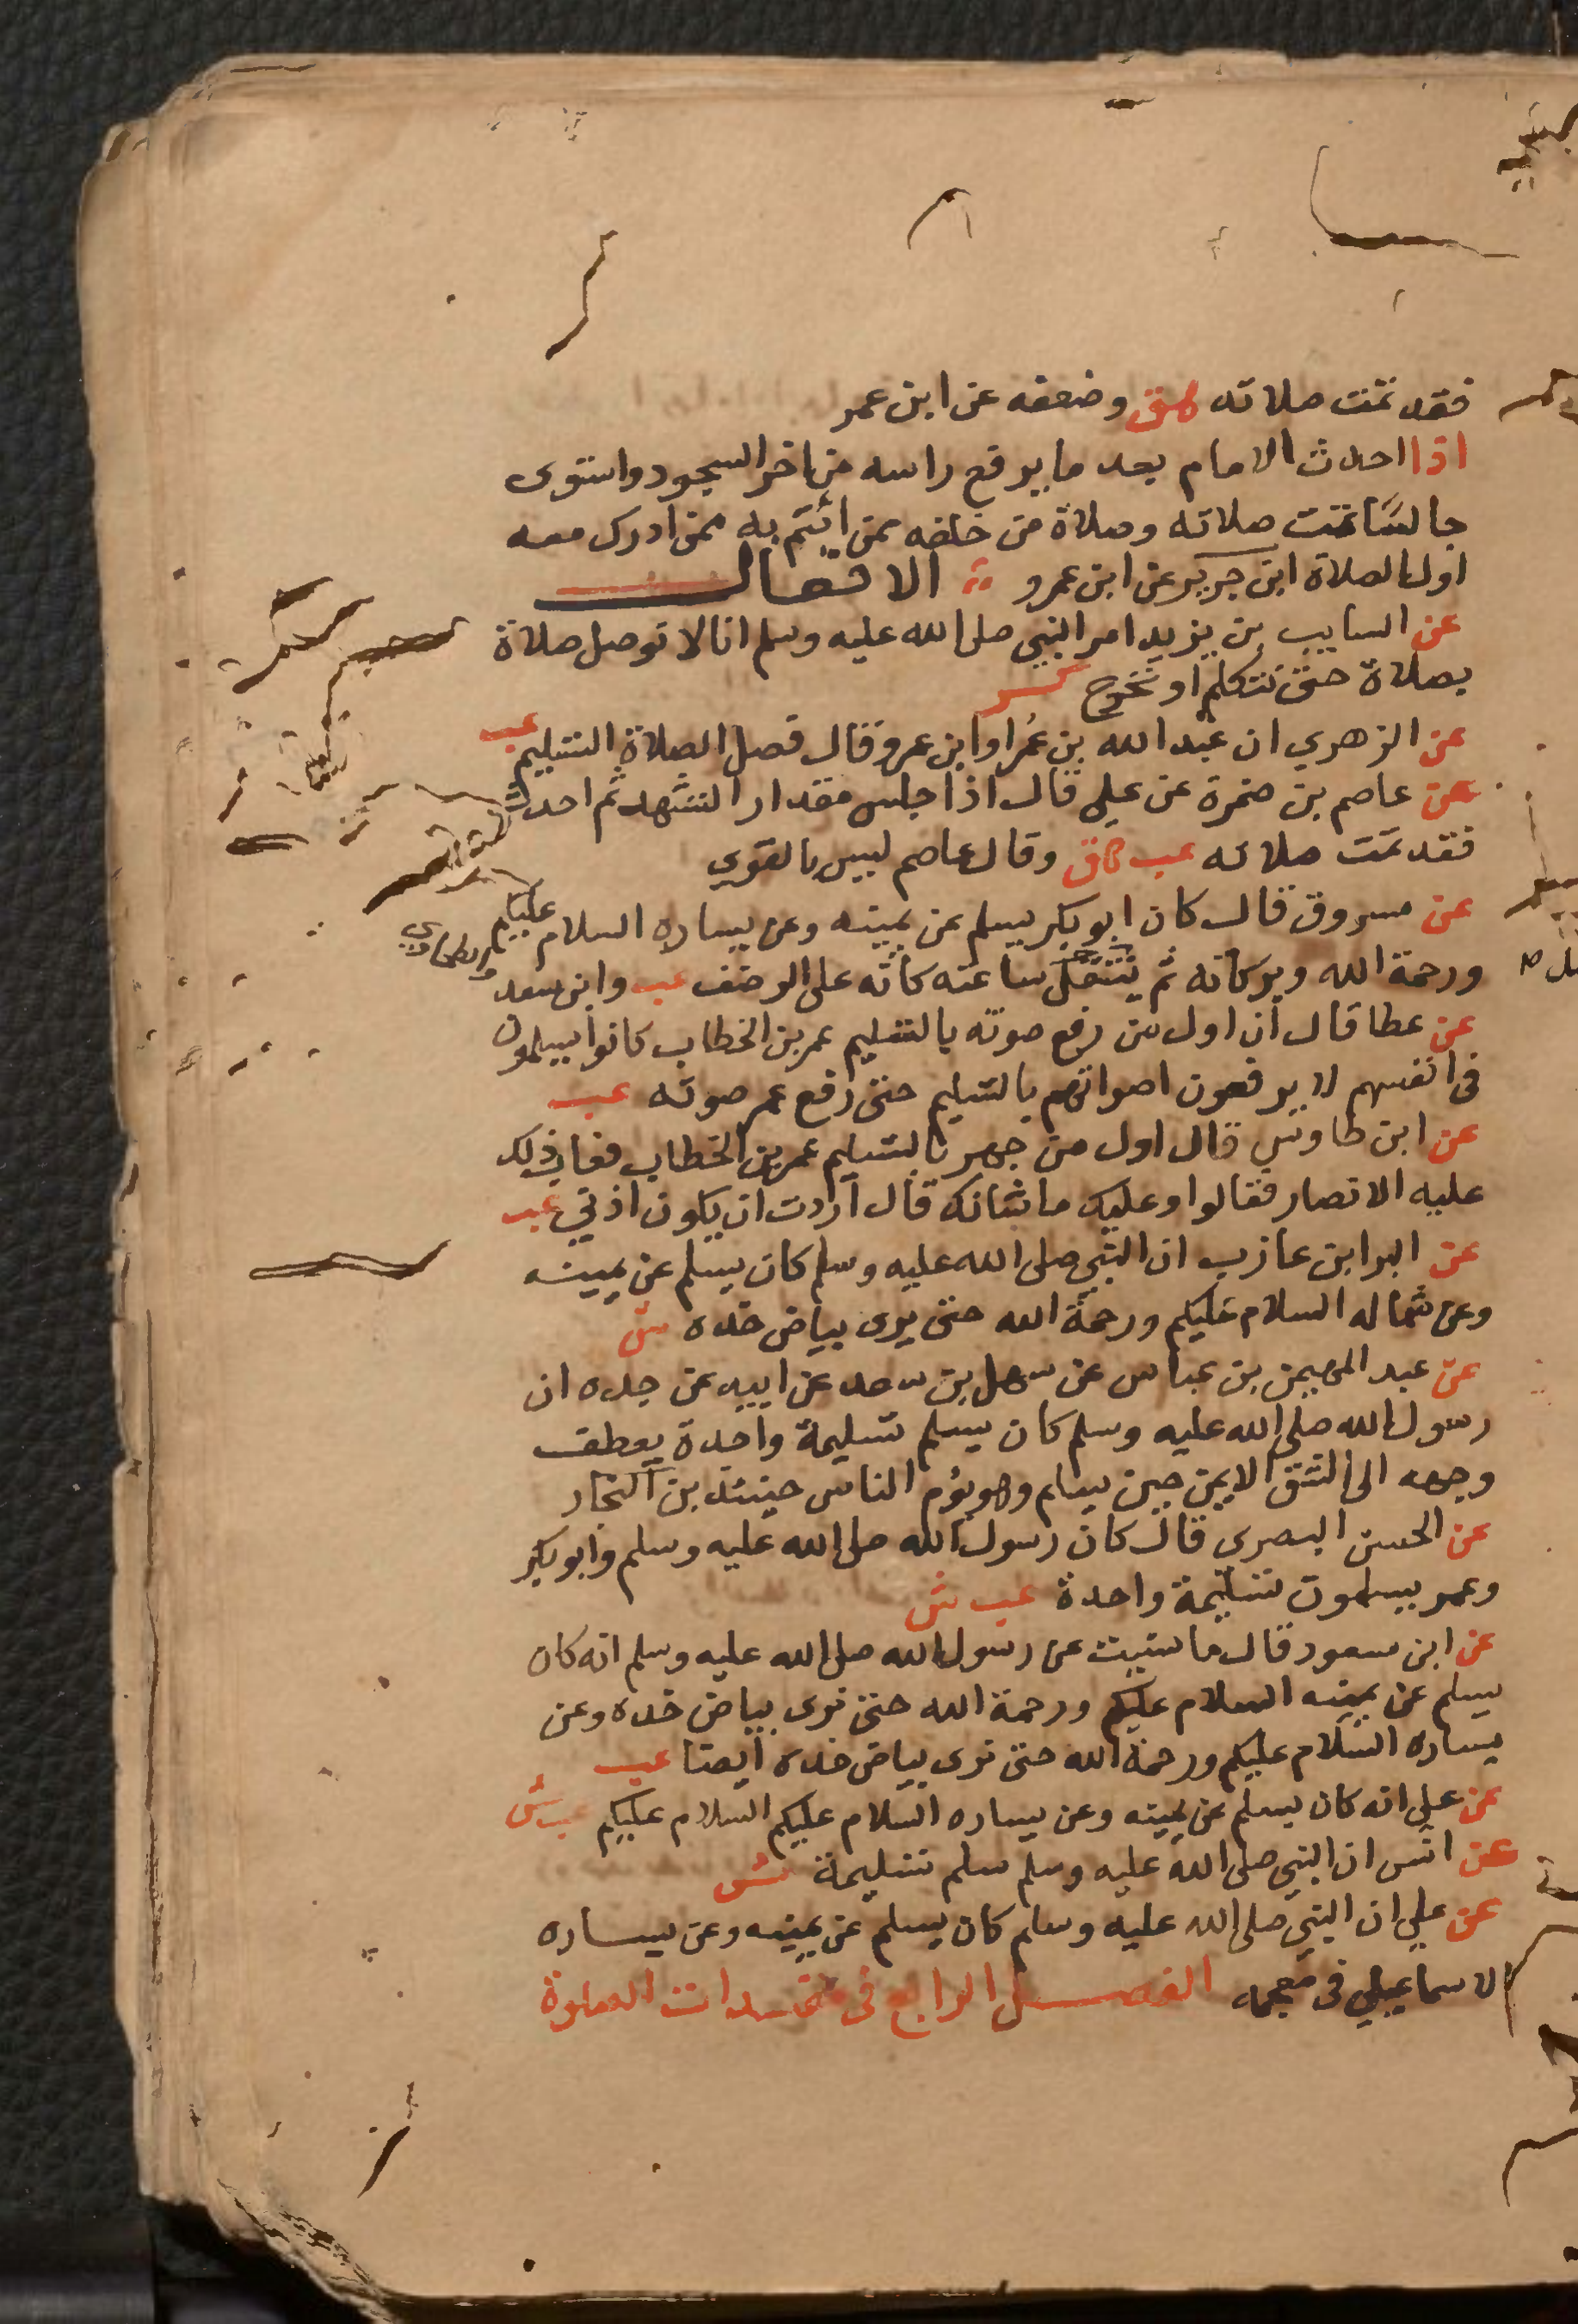 فقد تمت صلاته هق وضعفه عن ابن عمر
اذا احدث الامام بعد ما يرفع راسه من اخر السجود واستوى
جالسًا تمت صلاته وصلاة من خلفه ممن ائتم به ممن ادرك معه
اول الصلاة ابن جرير عن ابن عمرو الافعال
عن السايب بن يزيد امر النبي صلى الله عليه وسلم انا لا توصل صلاة
بصلاة حتى نتكلم او نخرج كر
عن الزهري ان عبد الله بن عُمر او ابن عمرو قال فصل الصلاة التسليم عب
عن عاصم بن ضمرة عن علي قال اذا جلس مقدار التشهد ثم احدث
فقد تمت صلاته عب ق وقال عاصم ليس بالقوي
عن مسروق قال كان ابو بكر يسلم عن يمينه وعن يساره السلام عليكم
ورحمة الله وبركاته ثم ينتقل ساعته كانه على الرضف عب وابن سعد والطحاوي
عن عطا قال ان اول من رفع صوته بالتسليم عمر بن الخطاب كانوا يسلمون
في انفسهم لا يرفعون اصواتهم بالتسليم حتى رفع عمر صوته عب
عن ابن طاوس قال اول من جهر بالتسليم عمر بن الخطاب فعاب ذلك
عليه الانصار فقالوا وعليك ما شانك قال اردت ان يكون اذني عب
عن البرا بن عازب ان النبي صلى الله عليه وسلم كان يسلم عن يمينه
وعن شماله السلام عليكم ورحمة الله حتى يرى بياض خده ش
عن عبد المهيمن بن عباس عن سهل بن سعد عن ابيه عن جده ان
رسول الله صلى الله عليه وسلم كان يسلم تسليمة واحدة يعطف
وجهه الى الشق الايمن حين يسلم وهو يؤم الناس حينئذ بن النجار
عن الحسن البصري قال كان رسول الله صلى الله عليه وسلم وابو بكر
وعمر يسلمون تسليمة واحدة عب ش
عن ابن مسعود قال ما نسيت عن رسول الله صلى الله عليه وسلم انه كان
يسلم عن يمينه السلام عليكم ورحمة الله حتى نرى بياض خده وعن
يساره السلام عليكم ورحمة الله حتى نرى بياض خده ايضا عب
عن علي انه كان يسلم عن يمينه وعن يساره السلام عليكم السلام عليكم عب ش
عن انس ان النبي صلى الله عليه وسلم سلم تسليمة ش
عن علي ان النبي صلى الله عليه وسلم كان يسلم عن يمينه وعن يساره
الاسماعيلي في معجمه الفصل الرابع في مفسدات الصلوة